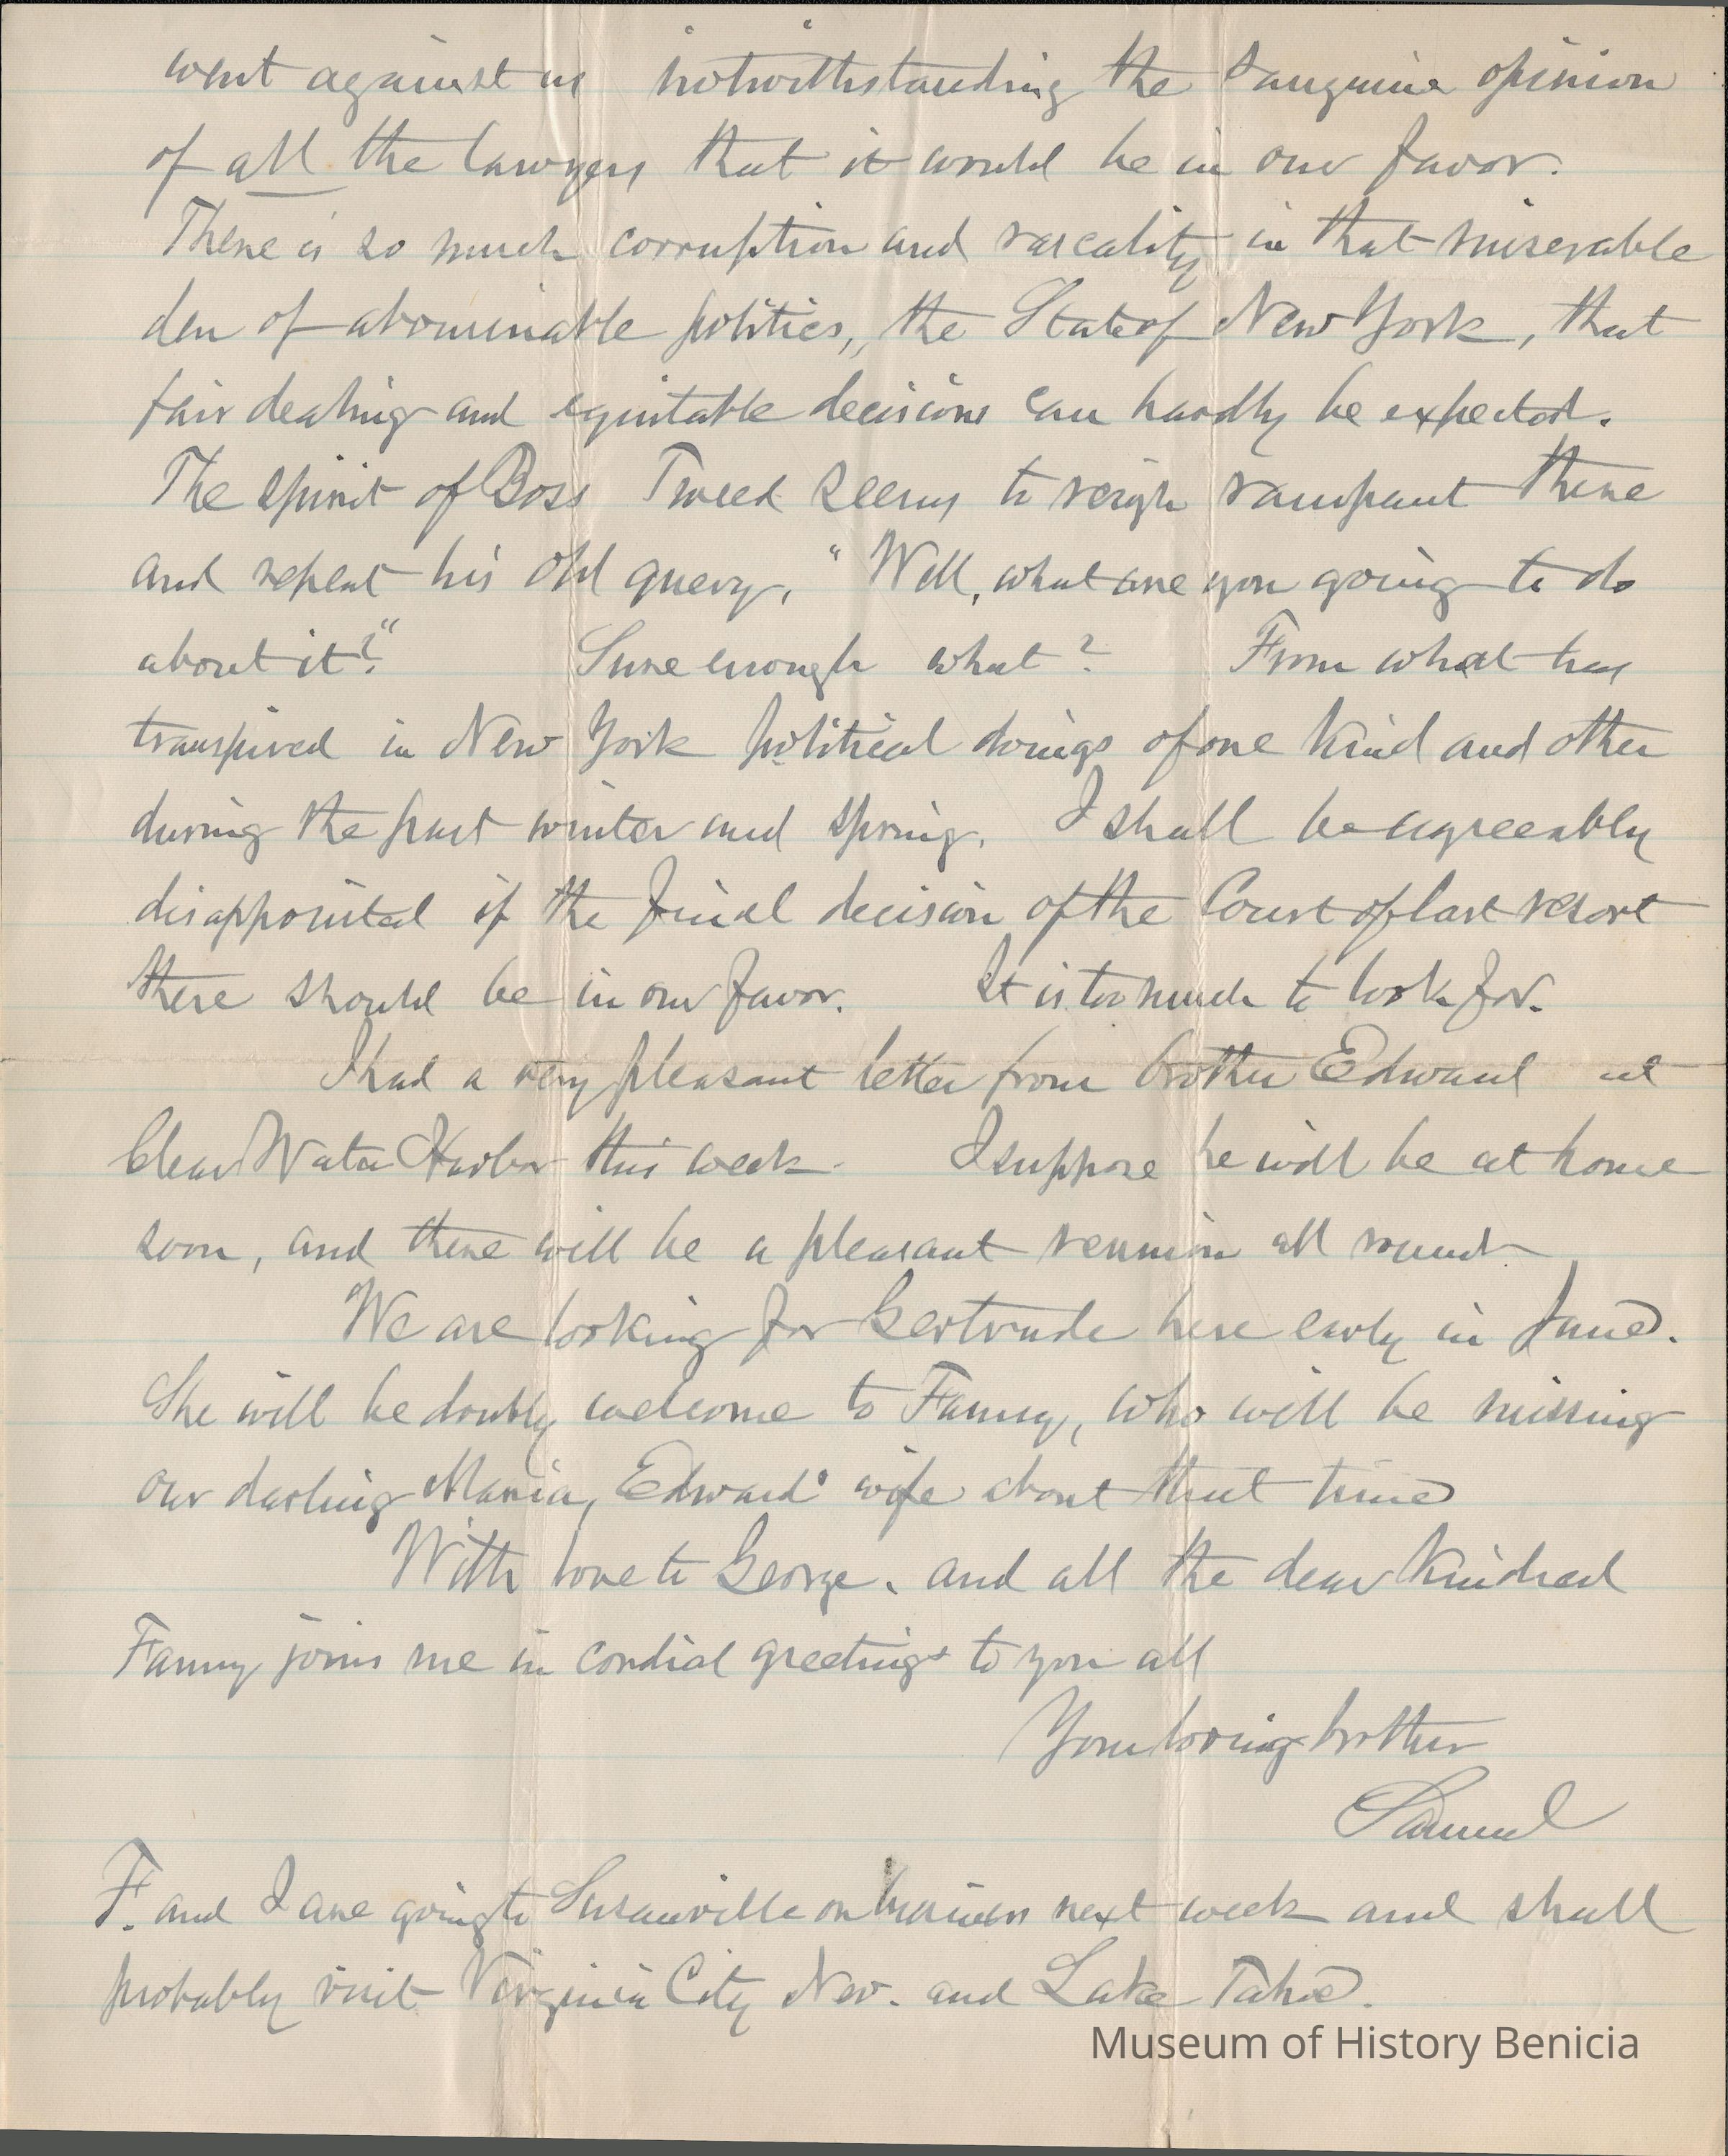 went against us notwithstanding the sanguine opinion
of all the lawyers that it would be in our favor.
There is so much corruption and rascality in that miserable
den of abominable politics, the State of New York, that
fair dealing and equitable decisions can hardly be expected.
The spirit of Boss Tweed seems to reign rampant there
and repeat his old query, "Well, what are you going to do
about it?" Sure enough what? From what has
transpired in New York political doings of one kind and other
during the past winter and spring, I shall be agreeably
disappointed if the final decision of the Court of last resort
there should be in our favor. It is too much to look for.
I had a very pleasant letter from brother Edward at
Clear Water Harbor this week. I suppose he will be at home
soon, and there will be a pleasant reunion all round.
We are looking for Gertrude here early in June.
She will be doubly welcome to Fanny, who will be missing
our darling Maria, Edward's wife about that time
With love to George, and all the dear kindred
Fanny joins me in cordial greetings to you all
Your loving brother
Samuel
F. and I are going to Susanville on business next week and shall
probably visit Virginia City Nev. and Lake Tahoe.
Museum of History Benicia